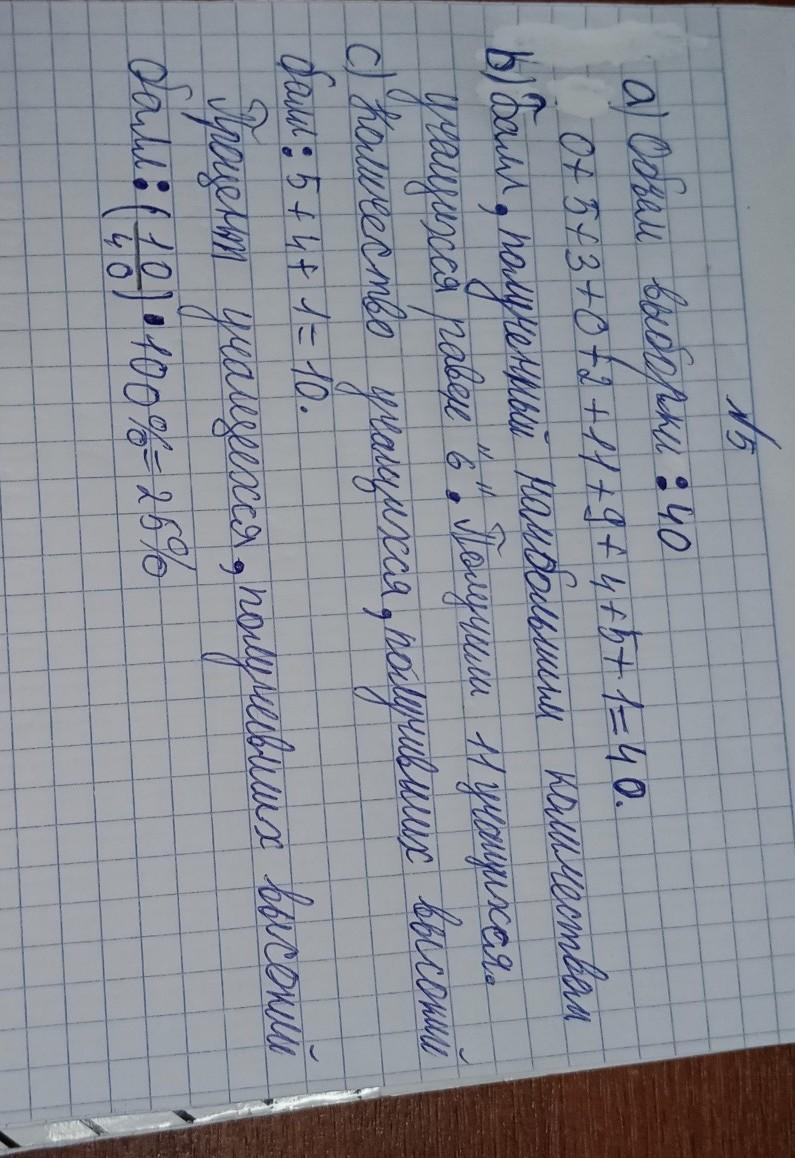 №5
a) Объем выборки : 40
0+5+3+0+2+11+9+4+5+1=40.
b) Балл, полученный наибольшим количеством
учащихся равен "6". Получили 11 учащихся.
c) Количество учащихся, получивших высокий
балл : 5+4+1=10.
Процент учащехся, получевших высокий
балл : (10/40) · 100%=25%